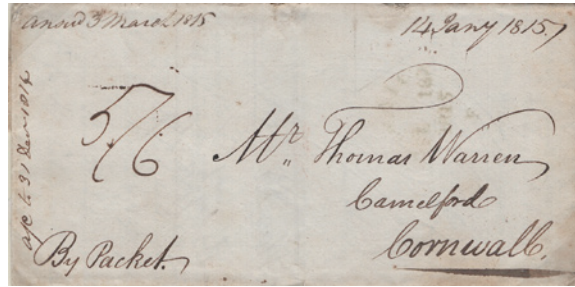 answd 3 March 1815
14 Jany 1815
5/6
Mr Thomas Warren
Camelford
Cornwall.
By Packet.
a/c to 31 Decr 1814